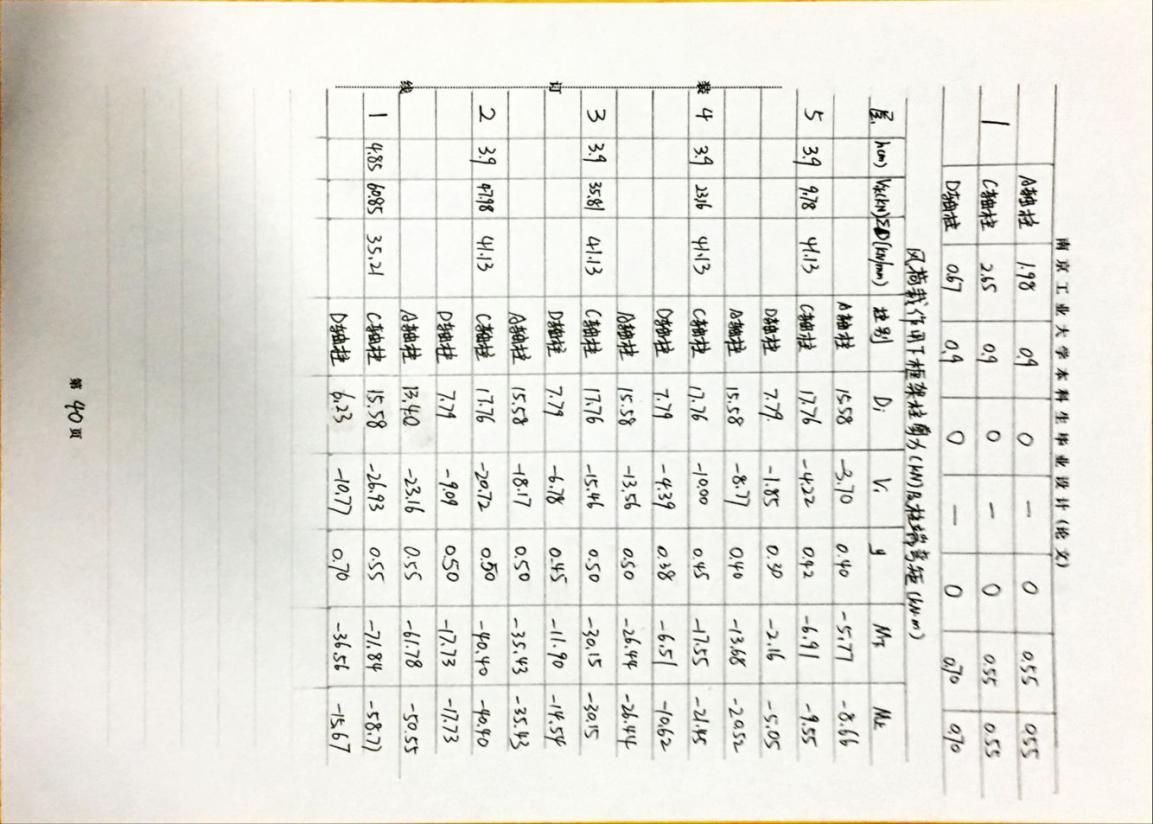 南京工业大学本科生毕业设计(论文)
A轴柱 1.98 0.9 0 — 0 0.55 0.55
1 C轴柱 2.65 0.9 0 — 0 0.55 0.55
D轴柱 0.67 0.9 0 — 0 0.70 0.70
风荷载作用下框架柱剪力(kN)及柱端弯矩(kN·m)
层 h(m) (kN) ΣD(kN/mm) 柱别 Di Vi y M下 M上
A轴柱 15.58 -3.70 0.40 -5.77 -8.66
5 3.9 9.78 41.13 C轴柱 17.76 -4.22 0.42 -6.91 -9.55
D轴柱 7.79 -1.85 0.30 -2.16 -5.05
A轴柱 15.58 -8.77 0.40 -13.68 -20.52
4 3.9 23.16 41.13 C轴柱 17.76 -10.00 0.45 -17.55 -21.45
D轴柱 7.79 -4.39 0.38 -6.51 -10.62
A轴柱 15.58 -13.56 0.50 -26.44 -26.44
3 3.9 35.81 41.13 C轴柱 17.76 -15.46 0.50 -30.15 -30.15
D轴柱 7.79 -6.78 0.45 -11.90 -14.54
A轴柱 15.58 -18.17 0.50 -35.43 -35.43
2 3.9 47.98 41.13 C轴柱 17.76 -20.72 0.50 -40.40 -40.40
D轴柱 7.79 -9.09 0.50 -17.73 -17.73
A轴柱 13.40 -23.16 0.55 -61.78 -50.55
1 4.85 60.85 35.21 C轴柱 15.58 -26.93 0.55 -71.84 -58.77
D轴柱 6.23 -10.77 0.70 -36.56 -15.67
装 订 线
第 40 页